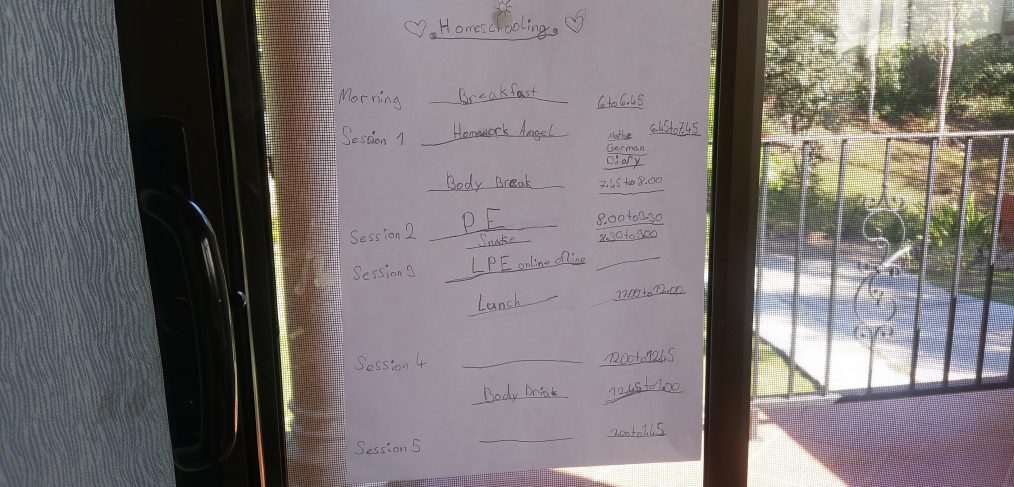 Homeschooling
Morning Breakfast 6 to 6.45
Session 1 Homework Angel 6.45 to 7.45
Mathe
German
Diary
Body Break 7.45 to 8.00
Session 2 PE 8.00 to 8.30
Snake 8.30 to 9.00
Session 3 LPE online offline
Lunch 11.00 to 12.00
Session 4 12.00 to 12.45
Body 12.45 to 1.00
Session 5